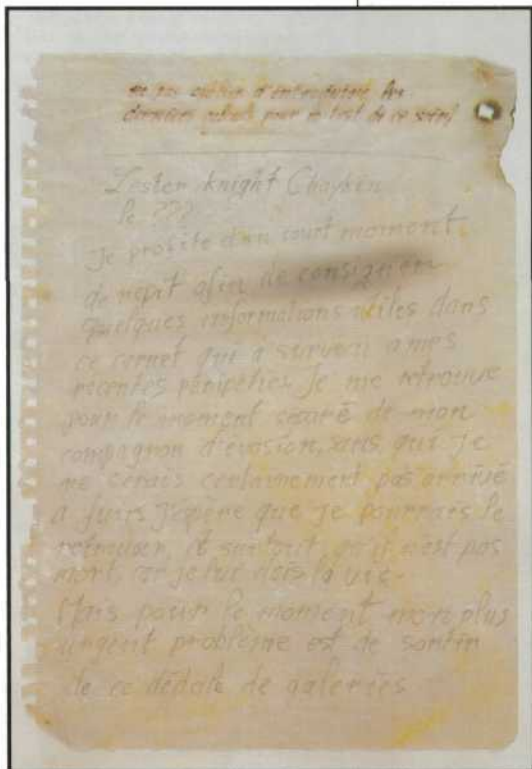 ne pas oublier d'entreposer les
derniers pour le test de ce soir!
Lester Knight Chaykin
le ???
Je profite d'un court moment
de répit afin de consigner
quelques informations utiles dans
ce carnet qui a survécu a mes
récentes péripéties. Je me retrouve
pour le moment séparé de mon
compagnon d'évasion, sans qui je
ne serais certainement pas arrivé
a fuir. J'èpère que je pourrais le
retrouver, et surtout, qu'il n'est pas
mort, car je lui dois la vie.
Mais pour le moment mon plus
urgent problème est de sortir
de ce dédale de galeries